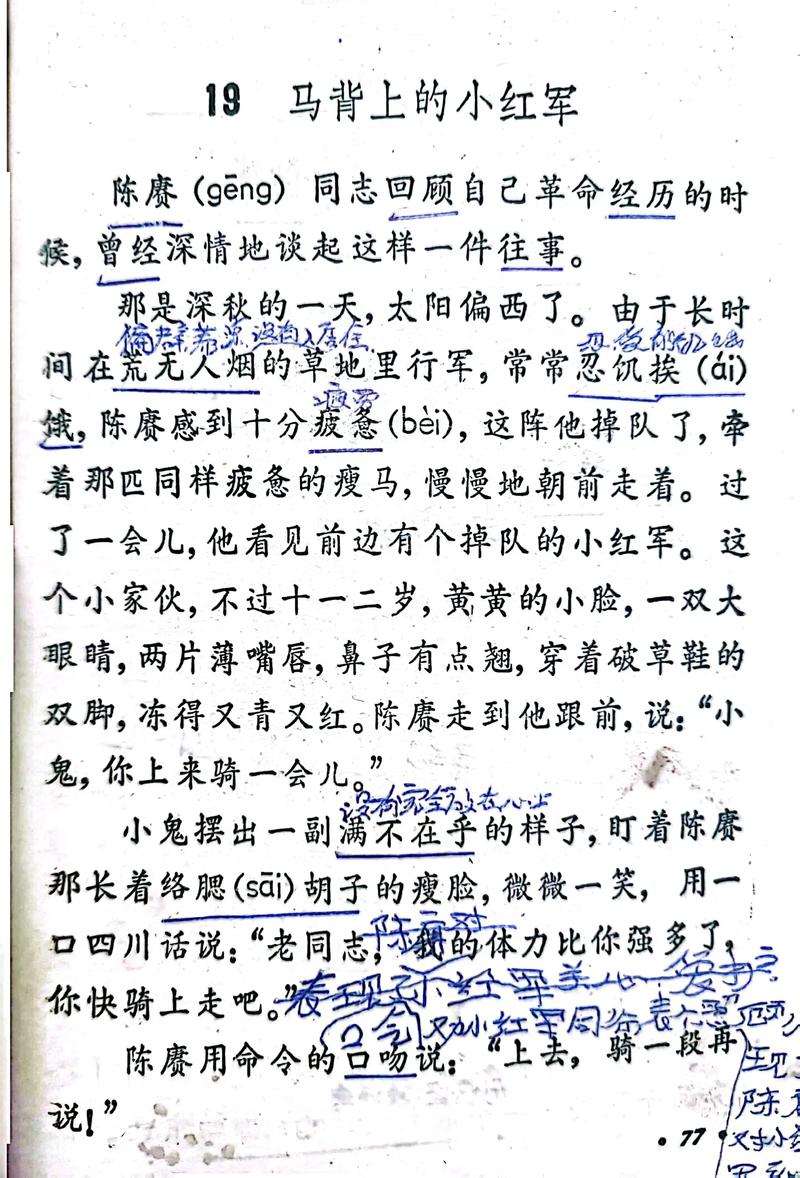 19 马背上的小红军
陈赓(gēng) 同志回顾自己革命经历的时
候，曾经深情地谈起这样一件往事。
那是深秋的一天，太阳偏西了。由于长时
没有人居住
间在荒无人烟的草地里行军，常常忍饥挨(ái)
疲劳
饿，陈赓感到十分疲惫(bèi)，这阵他掉队了，牵
着那匹同样疲惫的瘦马，慢慢地朝前走着。过
了一会儿，他看见前边有个掉队的小红军。这
个小家伙，不过十一二岁，黄黄的小脸，一双大
眼睛，两片薄嘴唇，鼻子有点翘，穿着破草鞋的
双脚，冻得又青又红。陈赓走到他跟前，说：“小
鬼，你上来骑一会儿。”
没有完全放在心上
小鬼摆出一副满不在乎的样子，盯着陈赓
那长着络腮(sāi)胡子的瘦脸，微微一笑，用一
口四川话说：“老同志，我的体力比你强多了，
你快骑上走吧。”
表现 小红军
对小红军同
陈赓用命令的口吻说：“上去，骑一段再
说！”
陈
对小
77